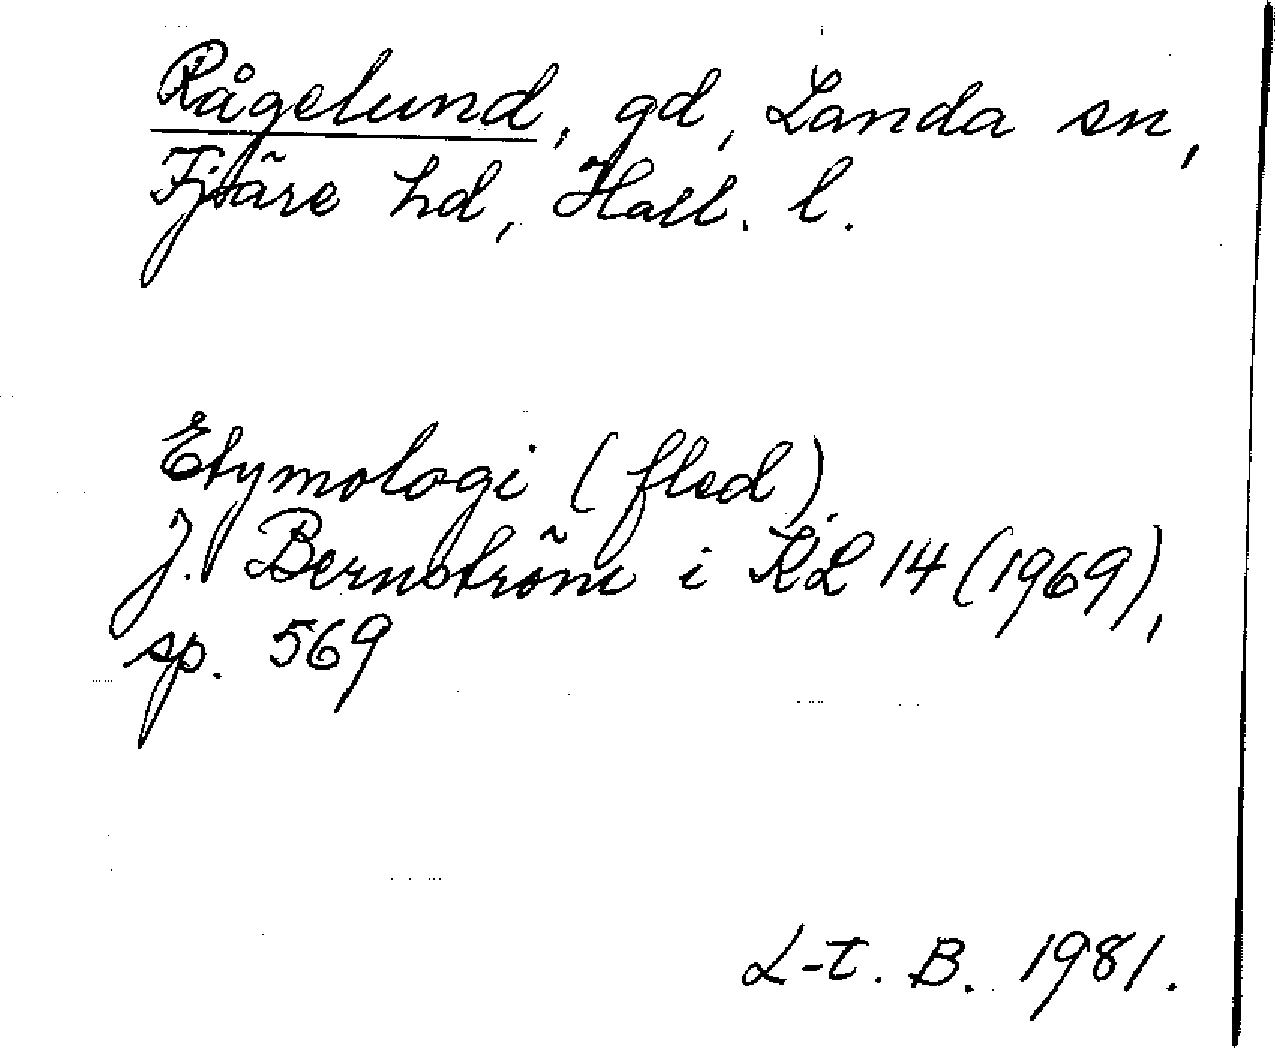 Rågelund, gd, Landa sn,
Fjäre hd, Hall. l.
Etymologi (fled).
J. Bernström i KL 14 (1969),
sp. 569
L-t. B. 1981.